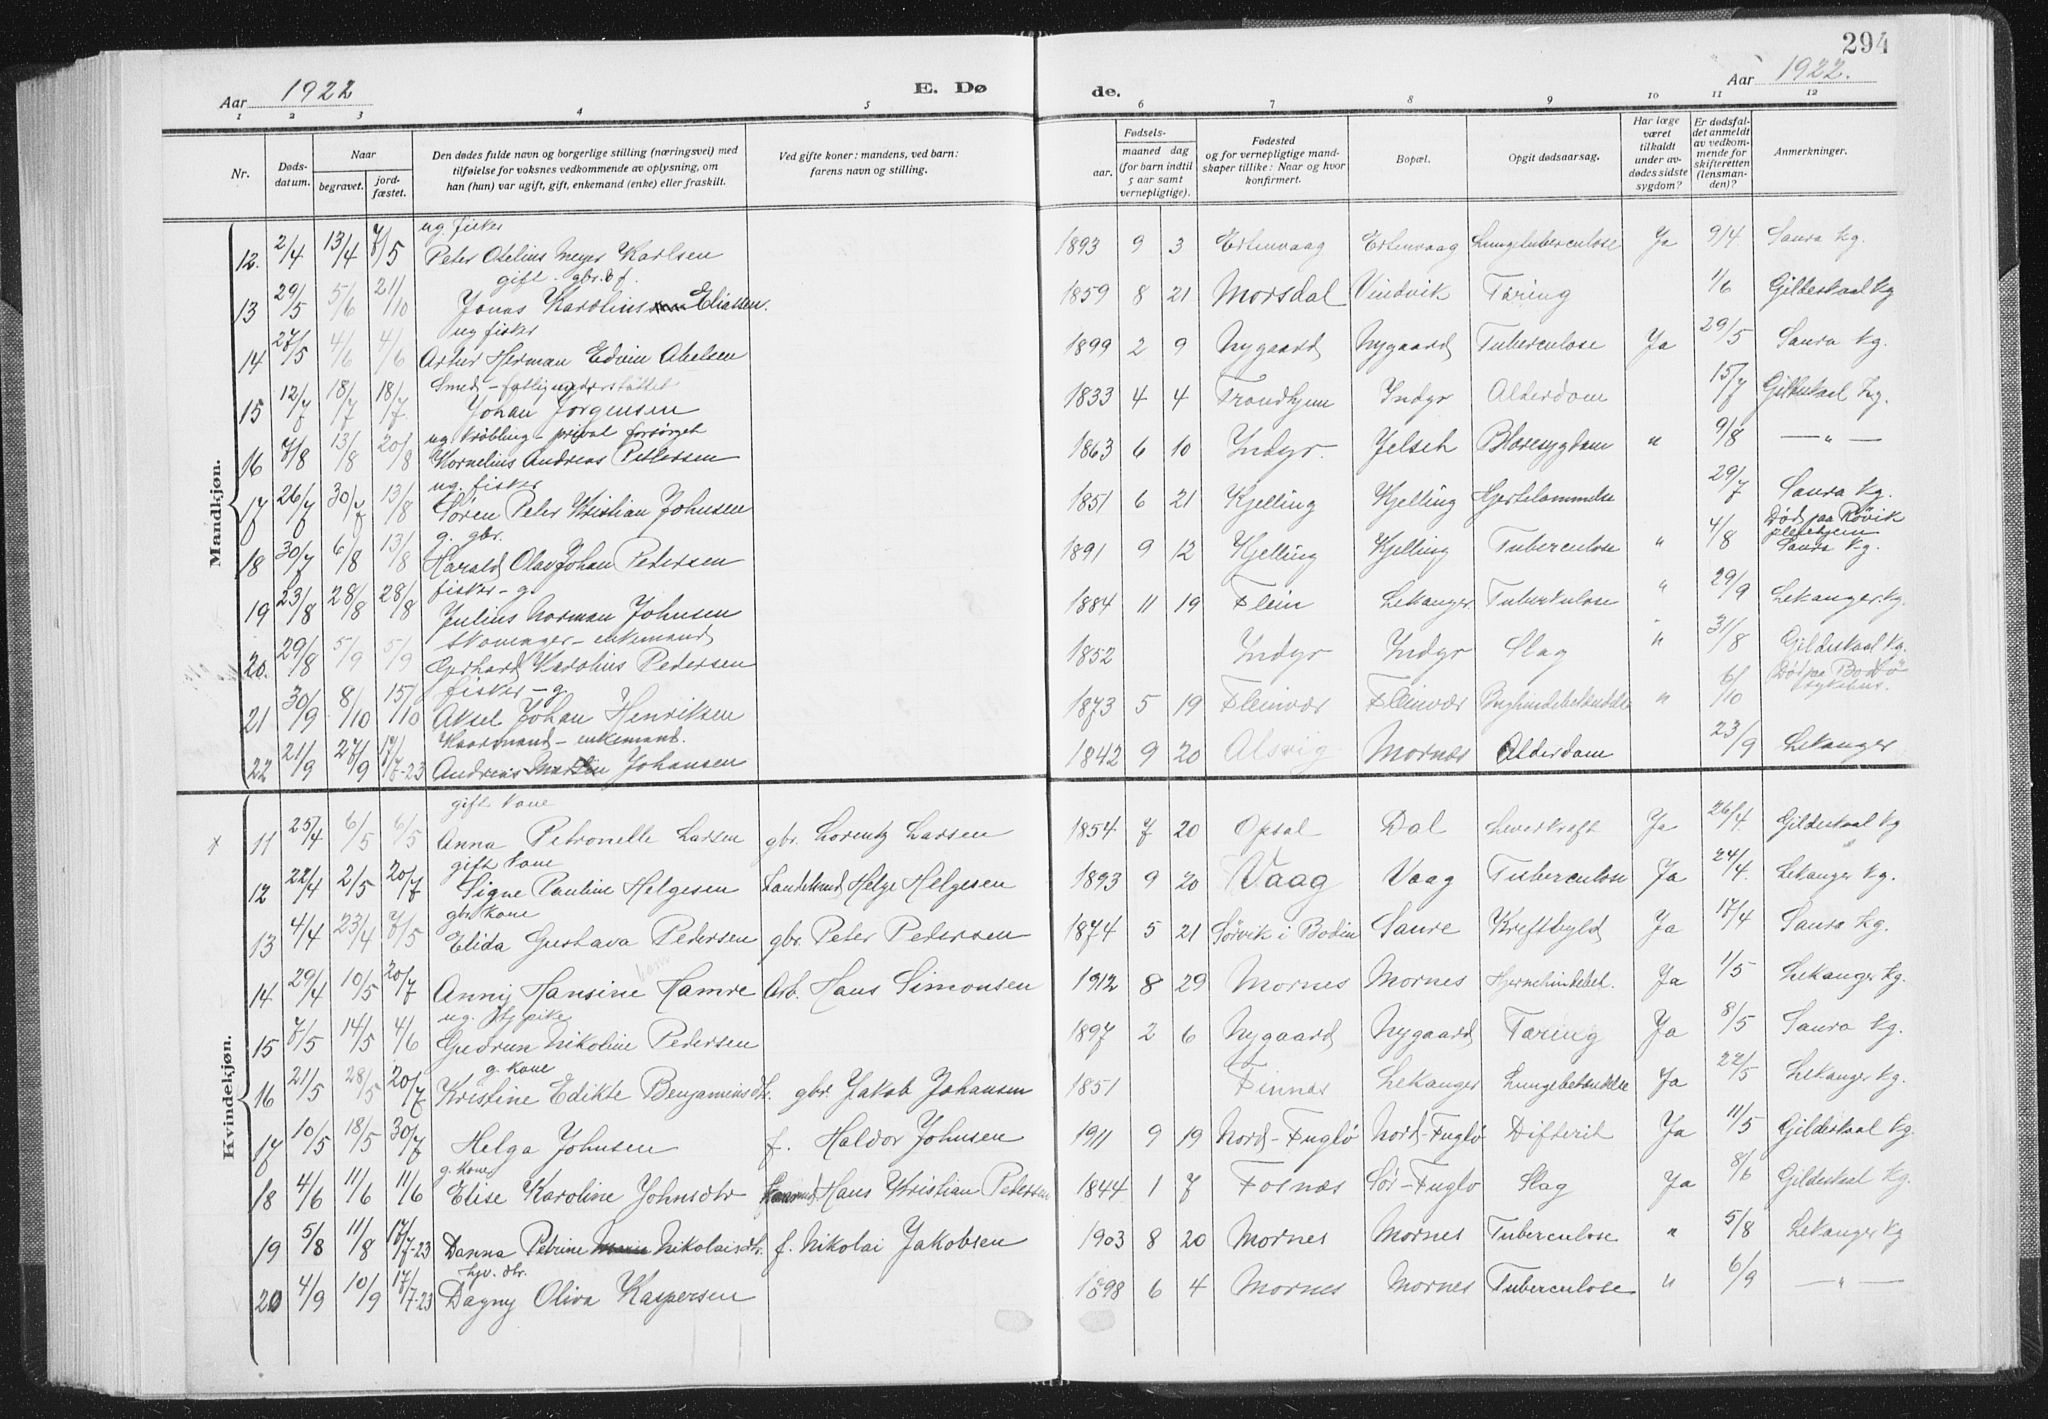 294
Aar 1922 E. Dø de. Aar 1922.
1 2 3 4 5 6 7 8 9 10 11 12
Nr. Døds-datum. Naar begravet. jord-fæstet. Den dødes fulde navn og borgerlige stilling (næringsvei) med tilføielse for voksnes vedkommende av oplysning, om han (hun) var ugift, gift, enkemand (enke) eller fraskilt. Ved gifte koner: mandens, ved barn: farens navn og stilling. Fødsels- aar. maaned dag (for barn indtil 5 aar samt vernepligtige). Fødested og for vernepligtige mandskaper tillike: Naar og hvor konfirmert. Bopæl. Opgit dødsaarsag. Har læge været tilkaldt under avdødes sidste sygdom? Er dødsfaldet anmeldt av vedkommende for skifteretten (lensmanden)? Anmerkninger.
Mandkjøn.
ug. fisker
12. 2/4 13/4 7/5 Peter Otelius Meyer Karlsen 1893 9 3 Ertenvaag Ertenvaag Lungetuberculose Ja 9/4 Saura kg.
gift. gbr. & f.
13 29/5 5/6 21/10 Jonas Karolius Eliassen. 1859 8 21 Morsdal Vindvik Tæring 1/6 Gildeskaal kg
ug fisker
14 27/5 4/6 4/6 Artur Herman Edvin Abelsen 1899 2 9 Nygaard Nygaard Tuberculose Ja 29/5 Saura kg.
Smed - fattigunderstøttet
15 12/7 18/7 18/7 Johan Jørgensen 1833 4 4 Trondhjem Indyr Alderdom 15/7 Gildeskaal kg.
ug. krøbling - privat forsørget
16 7/8 13/8 20/8 Kornelius Andreas Pettersen 1863 6 10 Indyr. Jelstch Blæresygdom " 9/8 — " —
ug. fisker
17 26/7 30/7 13/8 Søren Peter Kristian Johnsen 1851 6 21 Kjelling Kjelling Hjertelammelse 29/7 Saura kg.
g. gbr. Død paa Røvik pleiehjem
18 30/7 6/8 13/8 Harald Olav Johan Pedersen 1891 9 12 Kjelling Kjelling Tuberculose " 4/8 Saura kg.
fisker - g
19 23/8 28/8 28/8 Julius Norman Johnsen 1884 11 19 Flein Lekanger Tuberkulose " 29/9 Lekanger kg.
Skomager - enkemand
20. 29/8 5/9 5/9 Gerhard Karolius Pedersen 1852 Indyr Indyr Slag " 31/8 Gildeskaal kg.
fisker - g
21 30/9 8/10 15/10 Aksel Johan Henriksen 1873 5 19 Fleinvær Fleinvær Bughindebetændelse " 6/10 Død paa Bodø sykehus.
Kaarmand - enkemand.
22 21/9 27/9 17/7-23 Andreas Martin Johansen 1842 9 20 Alsvig Mornes Alderdom 23/9 Lekanger
Kvindekjøn.
gift kone
x 11 25/4 6/5 6/5 Anna Petronelle Larsen gbr. Lorentz Larsen 1854 7 20 Opsal Dal Leverkræft Ja 26/4. Gildeskaal kg
gift kone
12 22/4 2/5 20/7 Signe Pauline Helgesen Landelsmd Helge Helgesen 1893 9 20 Vaag Vaag Tuberculose Ja 24/4. Lekanger kg.
gbr kone
13 4/4 23/4 7/5 Elida Gustava Pedersen gbr. Peter Pedersen 1874 5 21 Sørvik i Bodin Saure Kreftbyld Ja 17/4 Saura kg.
barn
14 29/4 10/5 20/7 Anny Hansine Hamre Arb. Hans Simonsen 1912 8 29 Mornes Mornes Hjernehindebet. Ja 1/5 Lekanger kg.
ug. tj pike
15 7/5 14/5 4/6 Gudrun Nikoline Pedersen 1897 2 6 Nygaard Nygaard Tæring Ja 8/5 Saura kg.
g. kone
16 21/5 28/5 20/7 Kristine Edikte Benjaminsdtr. gbr. Jakob Johansen 1851 Finnæs Lekanger Lungebetændelse Ja 22/5 Lekanger kg.
17 10/5 18/5 30/7 Helga Johnsen f. Haldor Johnsen 1911 9 19 Nord-Fuglø Nord-Fuglø Difterit Ja 11/5 Gildeskaal kg.
g. kone
18 4/6 11/6 11/6 Elise Karoline Johnsdtr Kaarmd Hans Kristian Pedersen 1844 1 7 Fosnæs Sør-Fuglø Slag Ja 8/6 Gildeskaal kg.
19 5/8 11/8 17/7-23 Danna Petrine Marie Nikolaisdtr. f. Nikolai Jakobsen 1903 8 20 Mornes Mornes Tuberculose " 5/8 Lekanger kg
hjv. dtr.
20 4/9 10/9 17/7-23 Dagny Oliva Kaspersen 1898 6 4 Mornes Mornes Tuberculose " 6/9 — " —